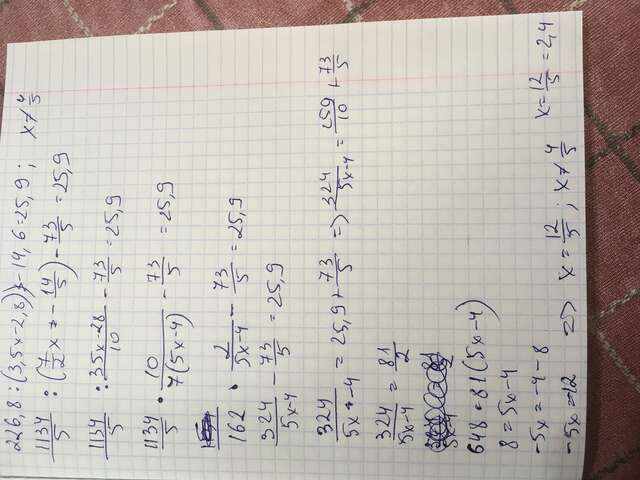 226,8 : (3,5x-2,8) - 14,6 = 25,9 ; x ≠ 4/5
1134/5 : (7/2 x - 14/5) - 73/5 = 25,9
1134/5 : 35x-28/10 - 73/5 = 25,9
1134/5 · 10/7(5x-4) - 73/5 = 25,9
162 · 2/5x-4 - 73/5 = 25,9
324/5x-4 - 73/5 = 25,9
324/5x-4 = 25,9 + 73/5 => 324/5x-4 = 259/10 + 73/5
324/5x-4 = 81/2
648 = 81(5x-4)
8 = 5x-4
-5x = -4-8
-5x = 12 => x = 12/5 ; x ≠ 4/5 x = 12/5 = 2,4